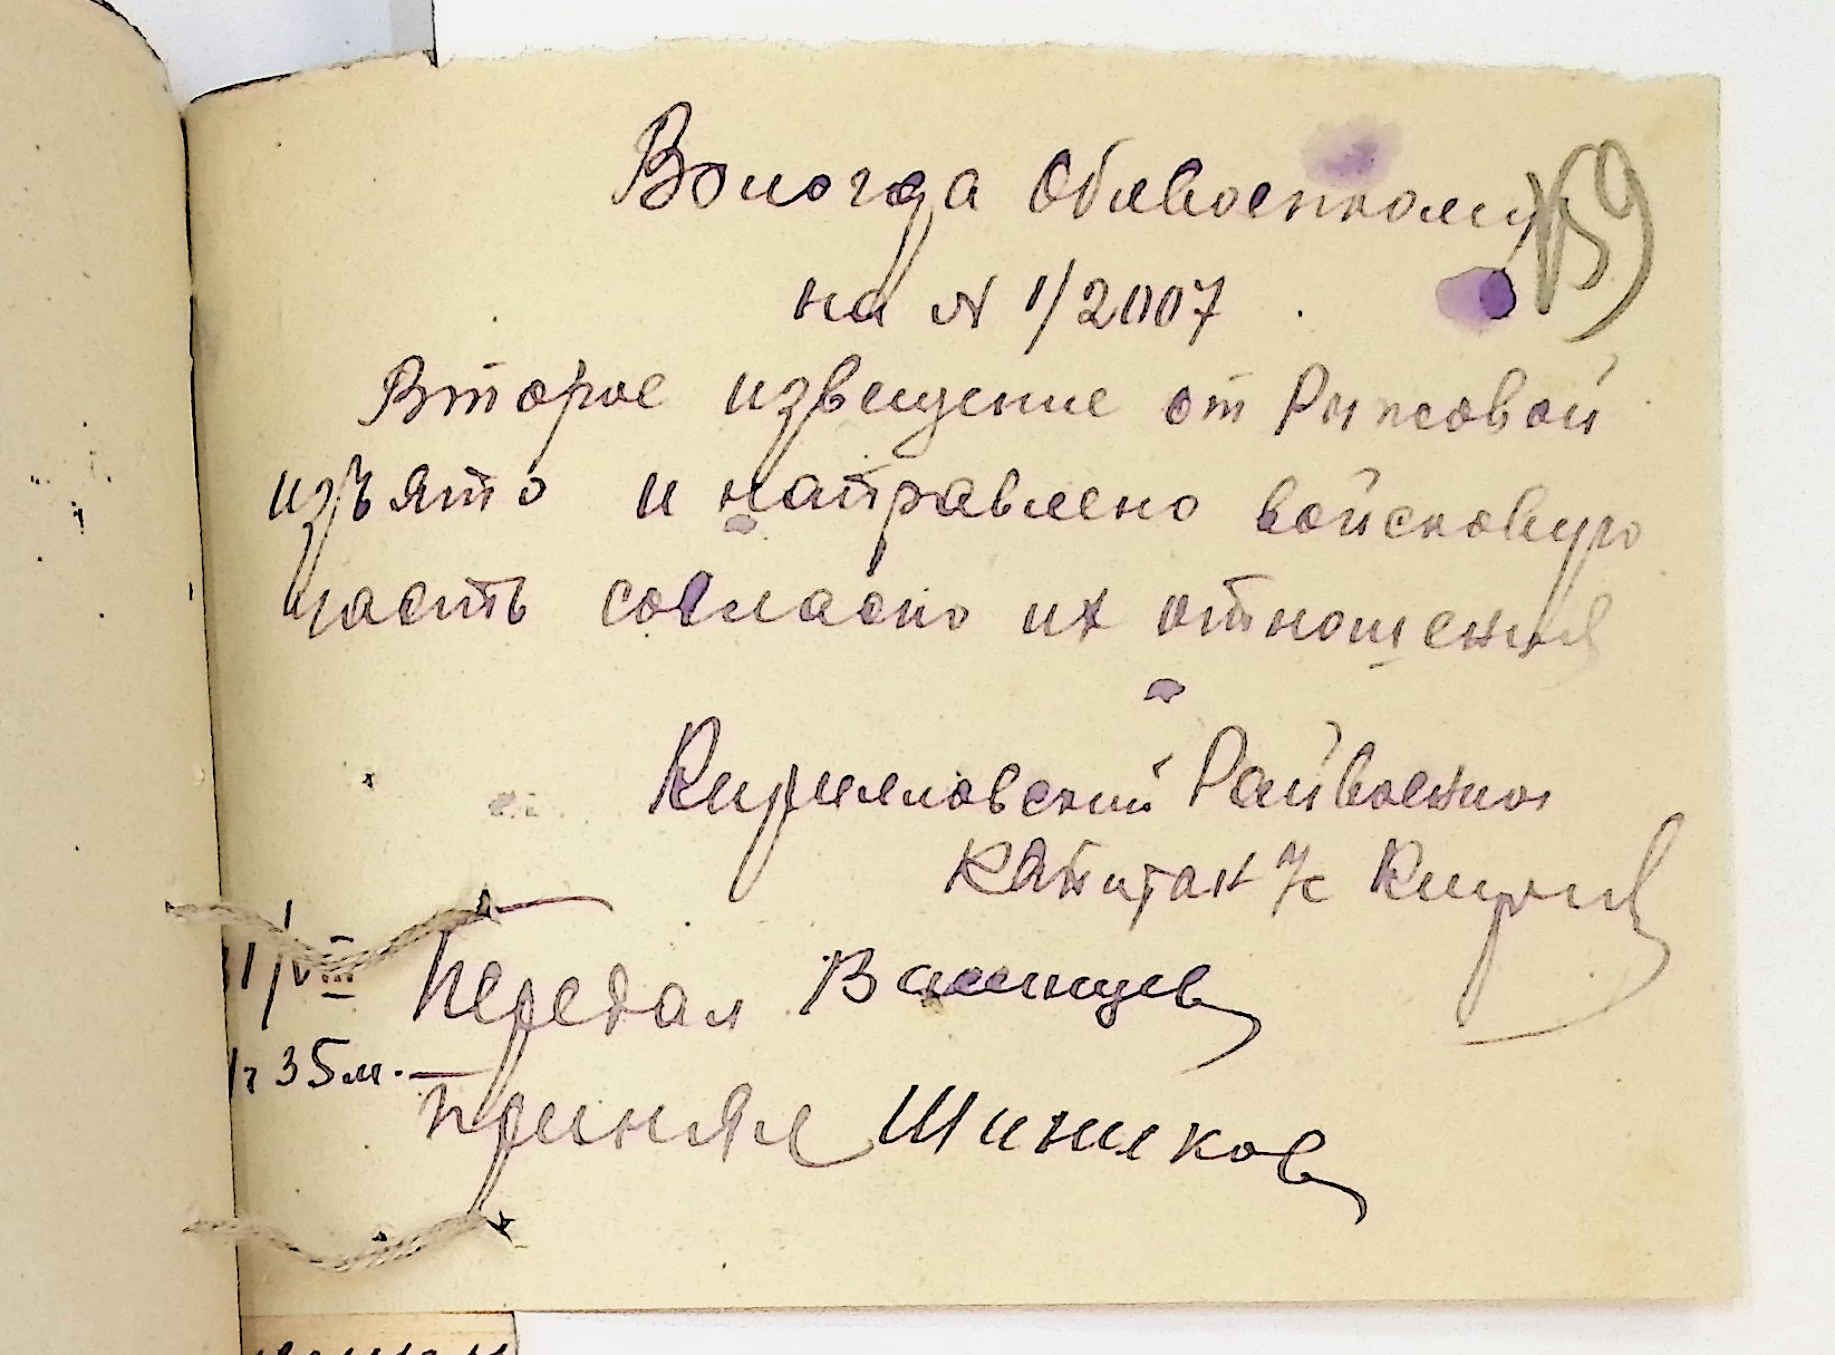 159
Вологда Облвоенкому
на N 1/2007
Второе извещение от Рыжовой
изъято и направлено войсковую
часть согласно их отношения
Кирилловский Райвоенком
капитан И/с
1/VIII Передал
1ч 35м. — Принял Шиньков